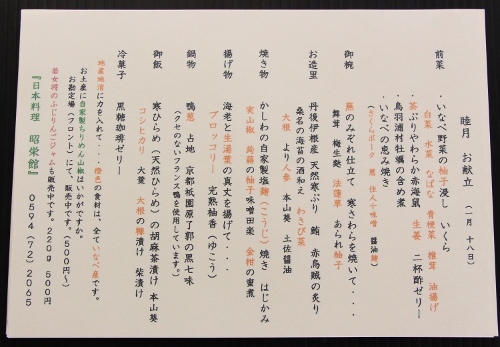 睦月 お献立 (一月 十八日)
前菜
・いなべ野菜の柚子浸し いくら
白菜 水菜 なばな 青梗菜 椎茸 油揚げ
・茶ぶりやわらか赤海鼠 生姜 二杯酢ゼリー
・鳥羽浦村牡蠣の含め煮
・いなべの恵み焼き
(さくらポーク 葱 住人十味噌 醤油麹)
御椀
蕪のみぞれ仕立て 寒さわらを焼いて・・・
舞茸 梅生麩 法蓮草 あられ柚子
お造里
丹後伊根産 天然寒ぶり 鮪 赤烏賊の炙り
桑名の海苔の酒和え わさび菜
大根 より人参 本山葵 土佐醤油
焼き物
かしわの自家製塩麹(こうじ)焼き はじかみ
実山椒 蒟蒻の柚子味噌田楽 金柑の蜜煮
揚げ物
海老と生湯葉の真丈を揚げて・・・
ブロッコリー 完熟柚香(ゆこう)
鍋物
鴨葱 占地 京都祇園原了郭の黒七味
(クセのないフランス鴨を使用しています。)
御飯
寒ひらめ(天然ひらめ)の胡麻茶漬け 本山葵
コシヒカリ 大葉 大根の樽漬け 柴漬け
冷菓子
黒糖珈琲ゼリー
地産地消に力を入れて・・・橙色の食材は、全ていなべ産です。
お土産に自家製ちりめん山椒はいかがですか。
お勘定場(フロント)にて、販売中です。(500円〜)
若女将のふじりんごジャムも販売中です。220g 500円
『日本料理 昭栄館』 0594(72)2065